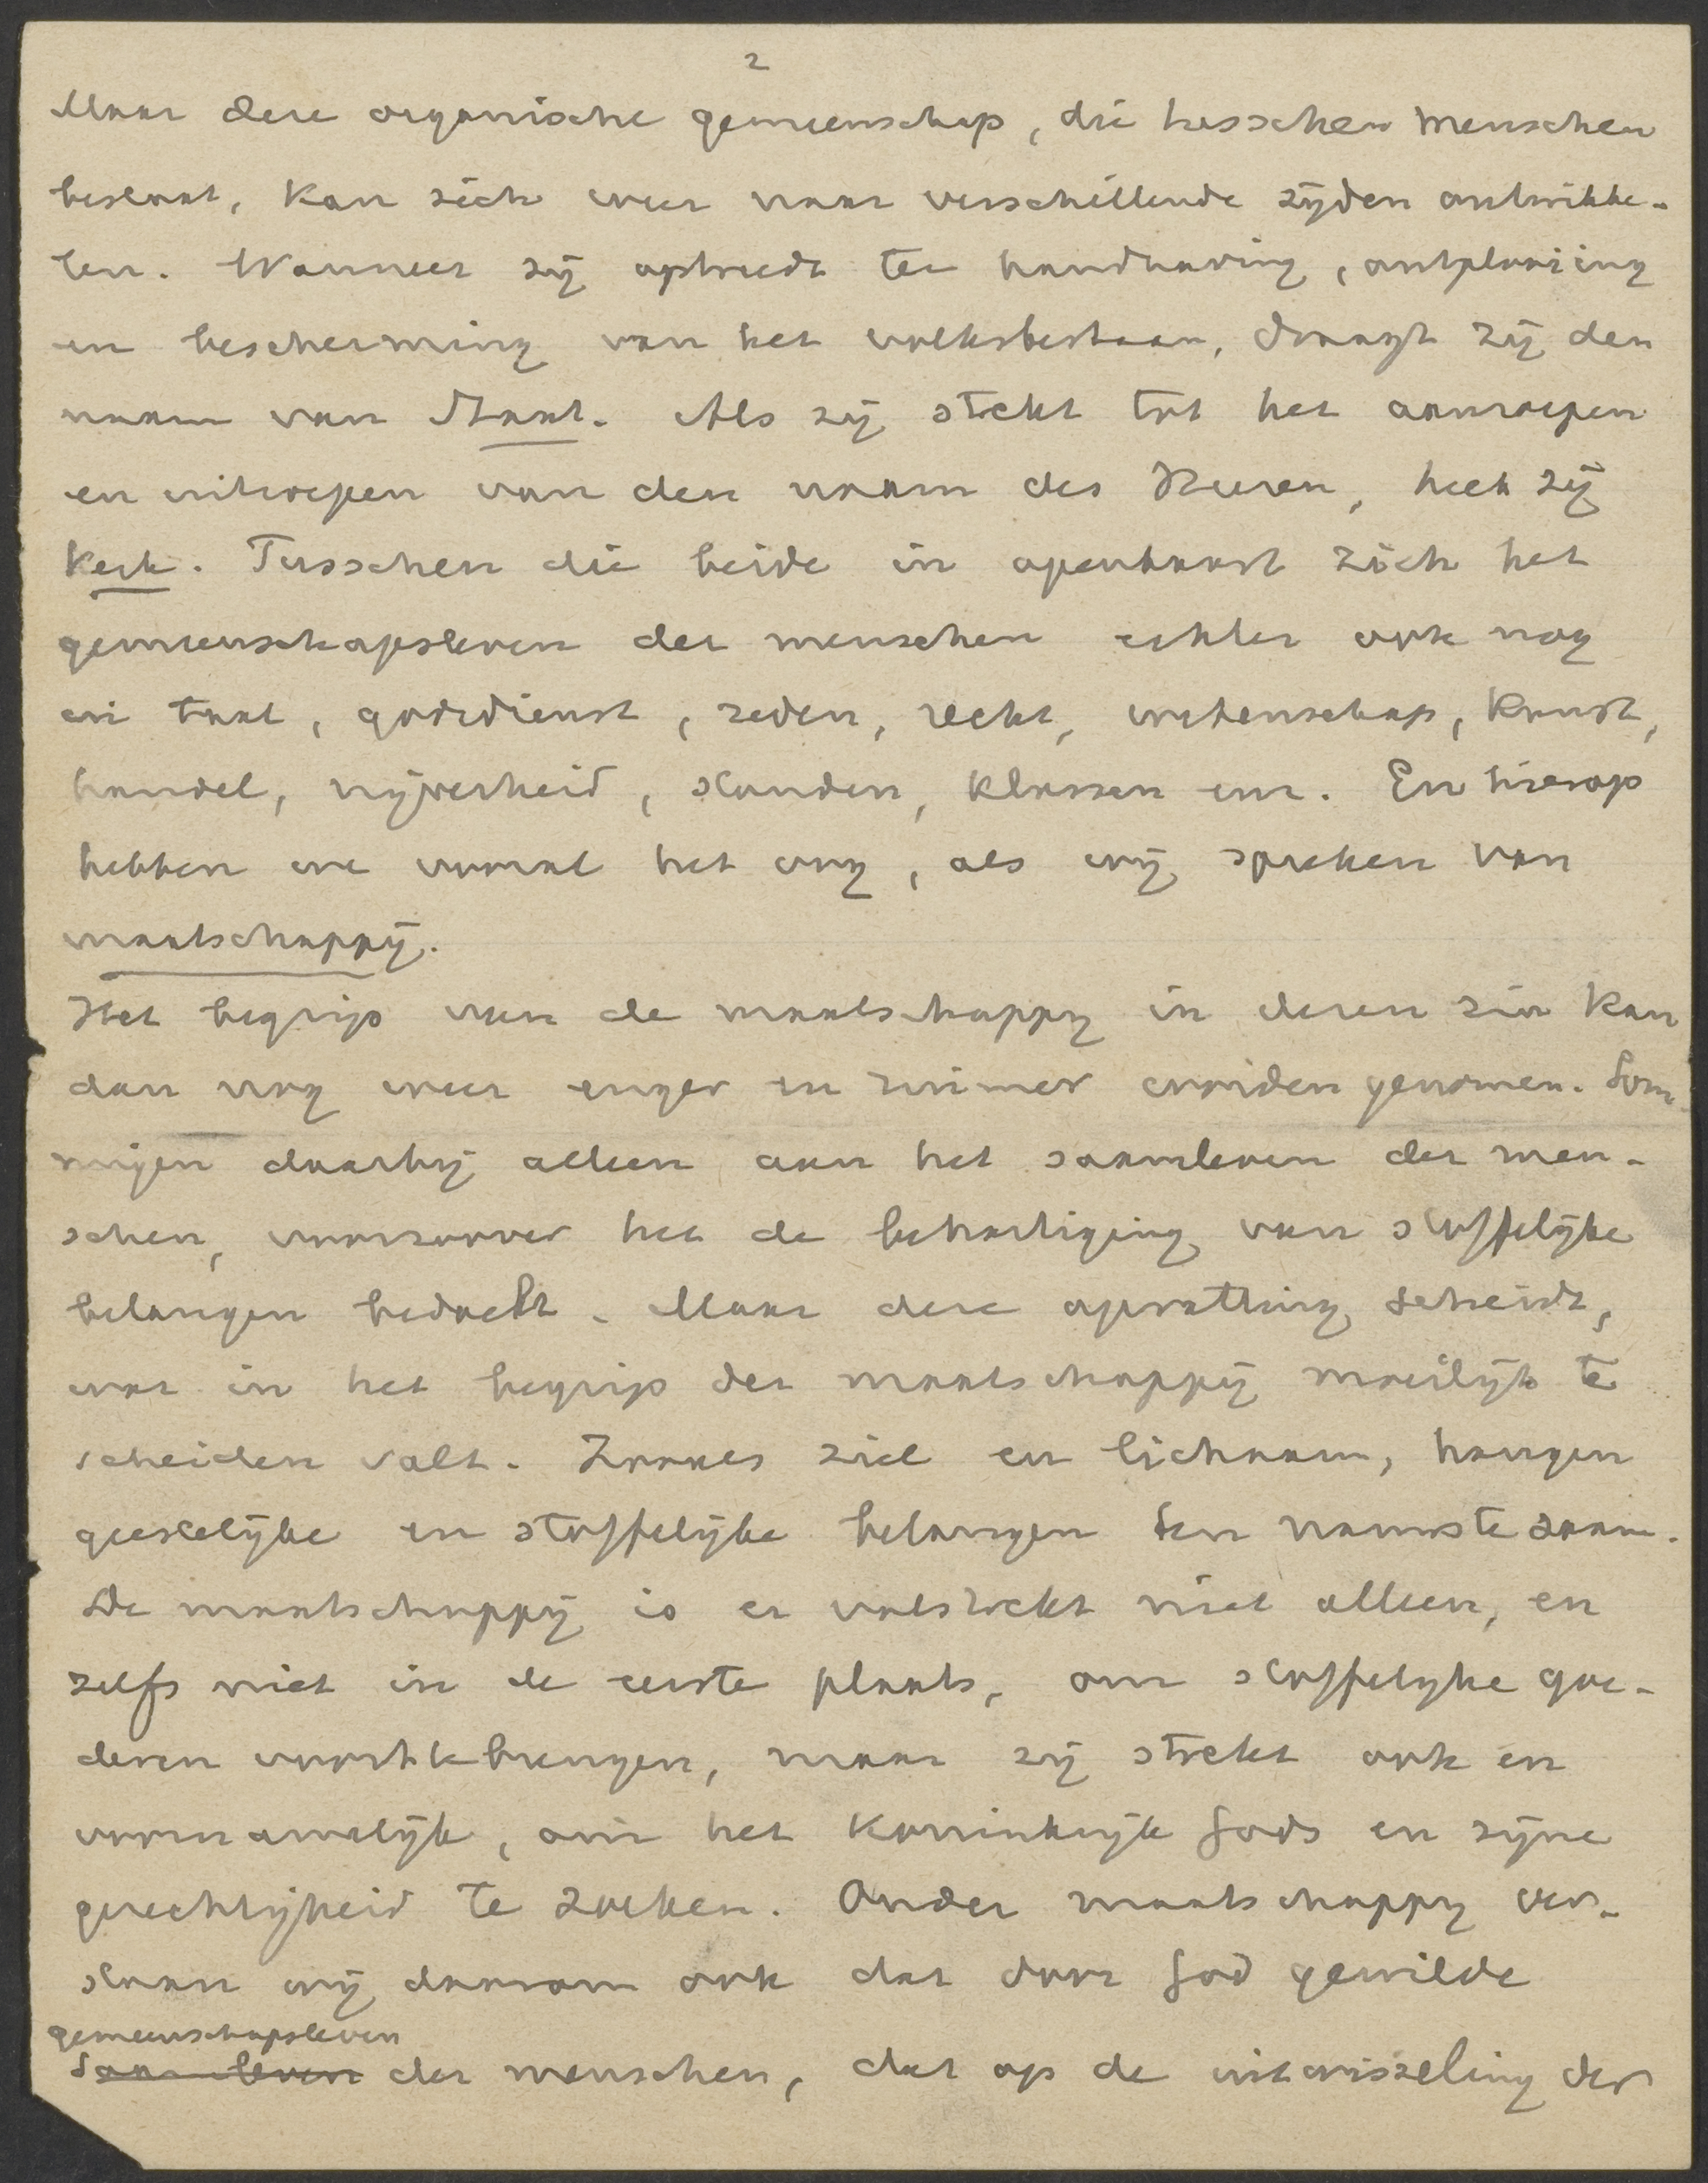 2
Maar deze organische gemeenschap, die tusschen menschen
bestaat, kan zich weer naar verschillende zijden ontwikke-
len. Wanneer zij optreedt ter handhaving, ontplooiing
en bescherming van het volksbestaan, draagt zij den
naam van Staat. Als zij strekt tot het aanroepen
en uitroepen van den naam des Heeren, heet zij
Kerk. Tusschen die beide in openbaart zich het
gemeenschapsleven der menschen echter ook nog
in taal, godsdienst, zeden, recht, wetenschap, kunst,
handel, nijverheid, standen, klassen enz. En hierop
hebben we vooral het oog, als wij spreken van
maatschappij.
Het begrip van de maatschappij in dezen zin kan
dan nog weer enger en ruimer worden genomen. Som-
migen daarbij alleen aan het saamleven der men-
schen, voorzoover het de behartiging van stoffelijke
belangen bedoelt. Maar deze opvatting scheidt,
wat in het begrip der maatschappij moeilijk te
scheiden valt. Zooals ziel en lichaam, hangen
geestelijke en stoffelijke belangen ten nauwste saam.
De maatschappij is er volstrekt niet alleen, en
zelfs niet in de eerste plaats, om stoffelijke goe-
deren voorttebrengen, maar zij strekt ook en
voornamelijk, om het Koninkrijk Gods en zijne
gerechtigheid te zoeken. Onder maatschappij ver-
staan wij daarom ook dat door God gewilde
gemeenschapsleven
saamleven der menschen, dat op de uitwisseling der